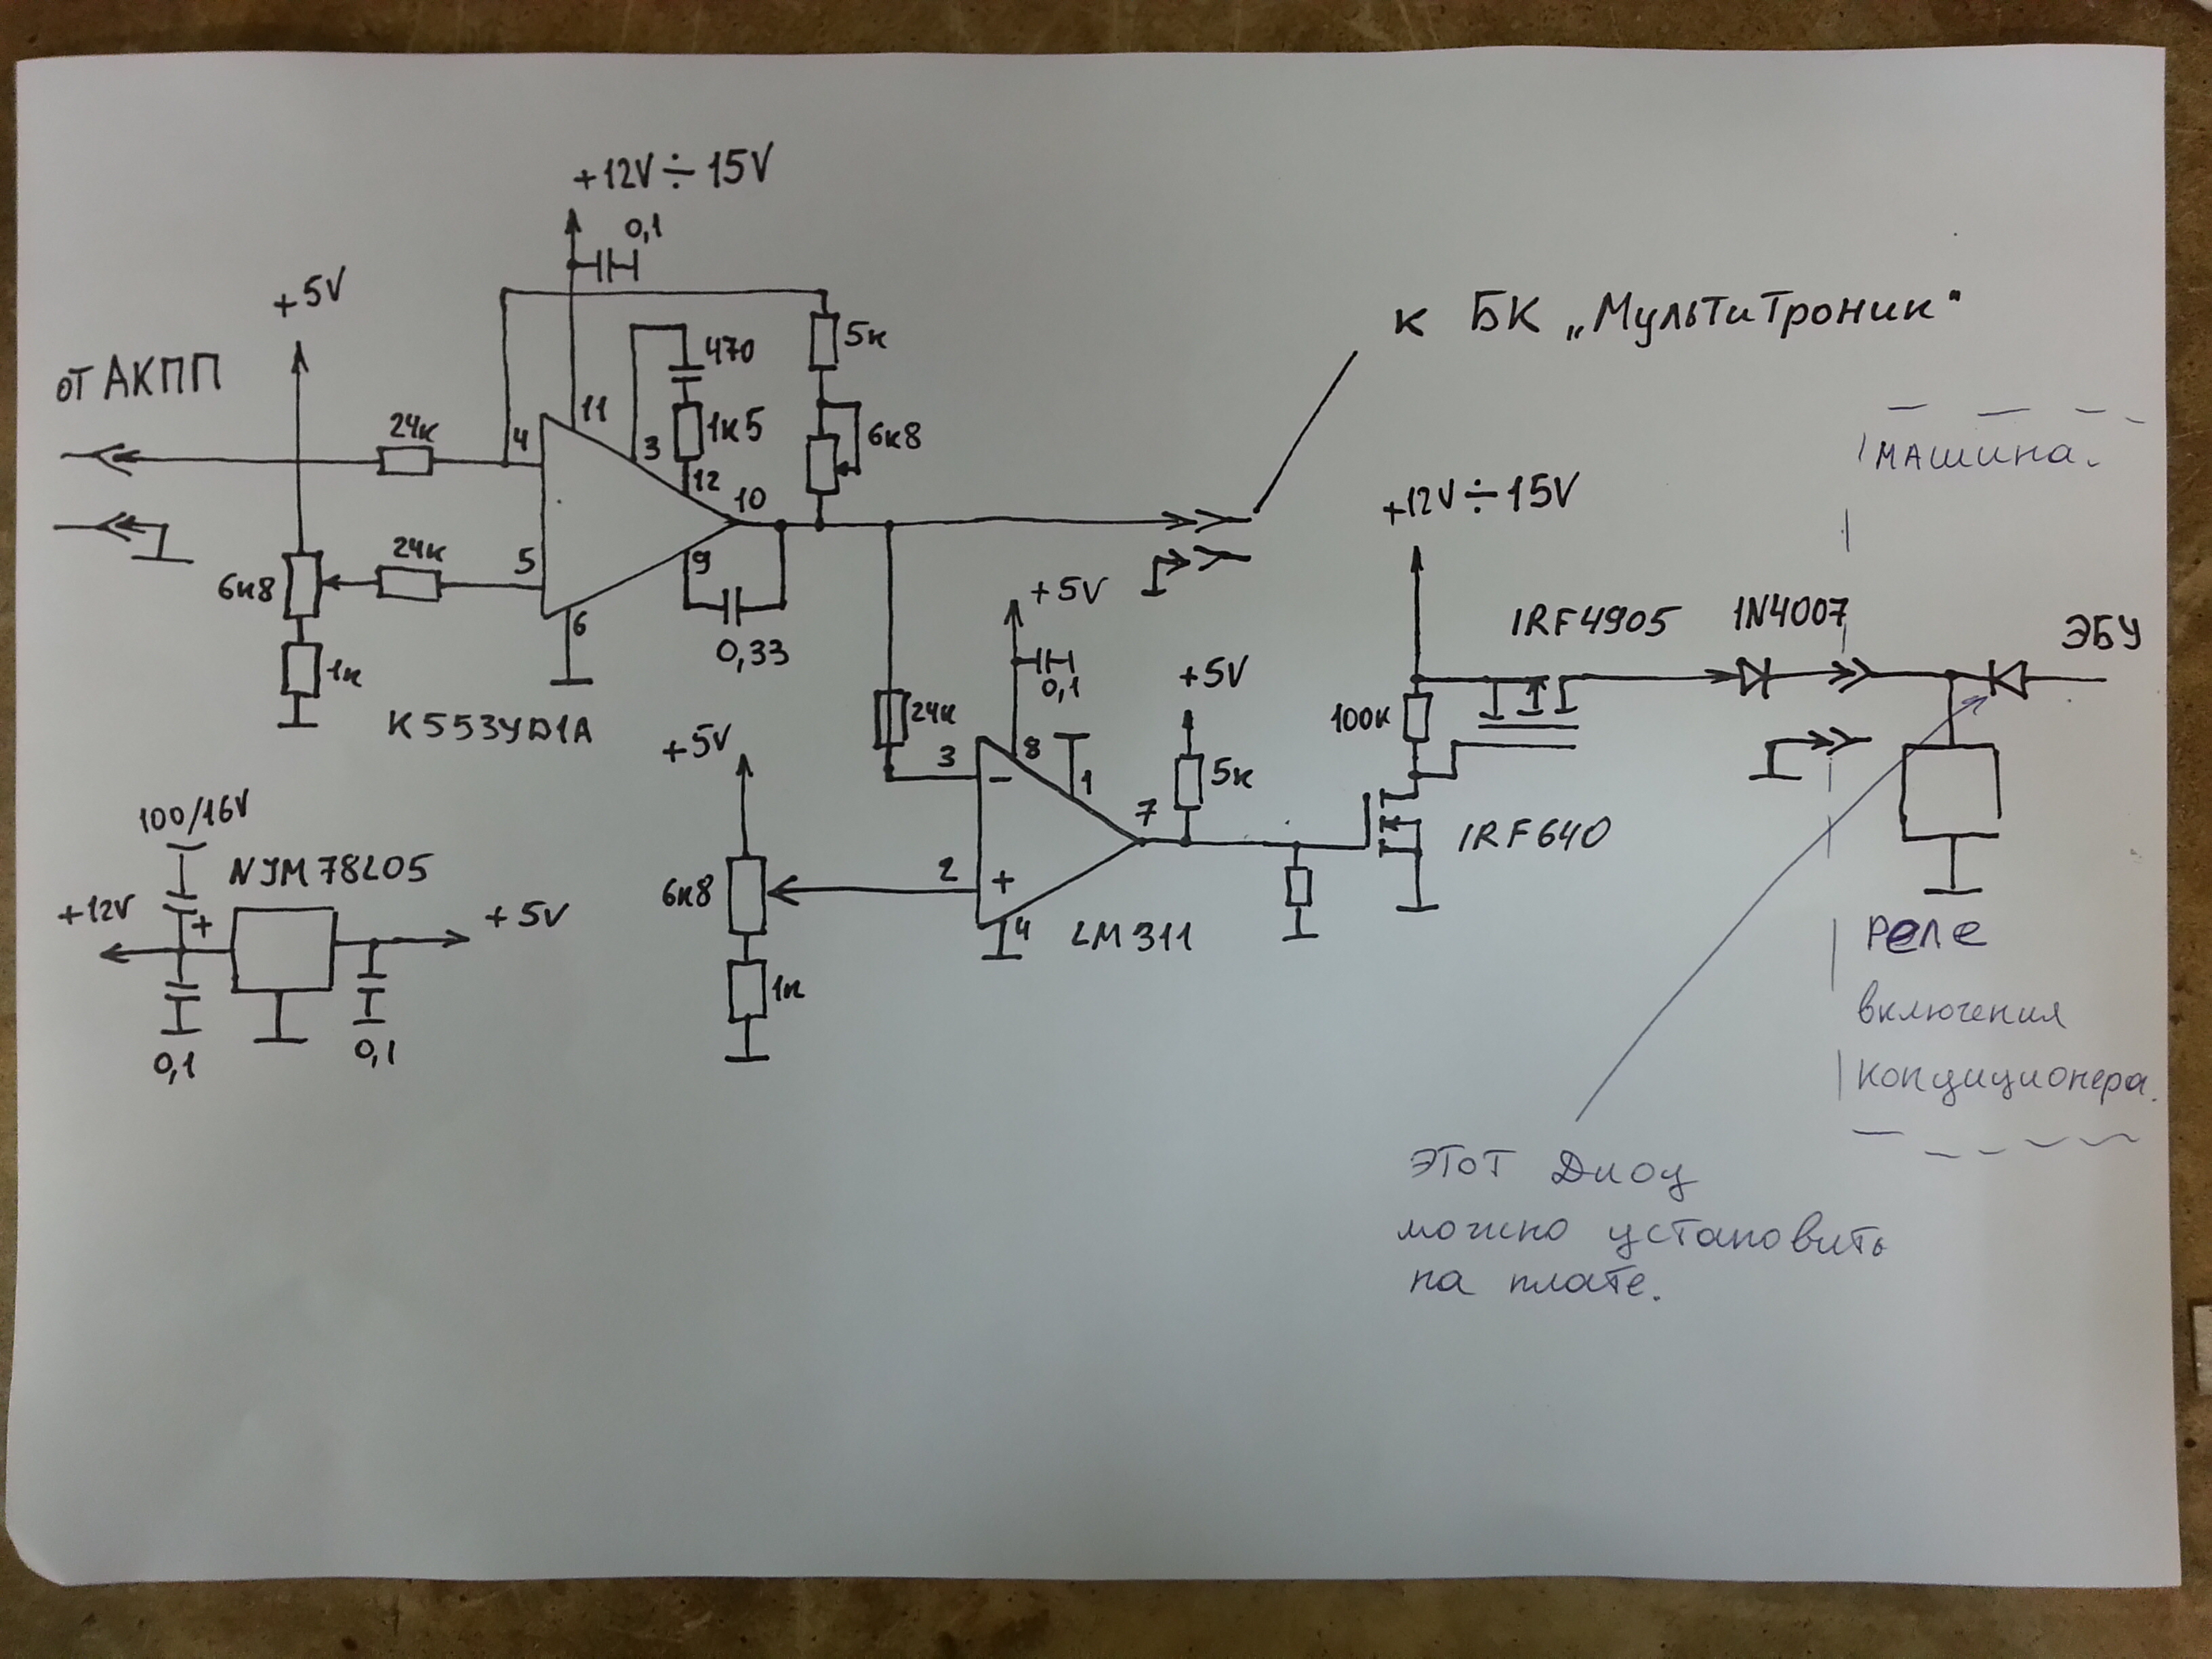 +12V ÷ 15V
0,1
+5V
5к
к БК „Мультитроник"
от АКПП
470
24к
4
11
3
1к5
6к8
12
10
машина.
+12V ÷ 15V
24к
5
6к8
9
6
0,33
1к
К553УД1А
+5V
0,1
+5V
IRF4905
1N4007
ЭБУ
100к
24к
+5V
3
8
1
−
5к
7
6к8
2
+
4
LM311
IRF640
1к
100/16V
NJM78L05
+12V
+
+5V
0,1
0,1
Реле
включения
кондиционера.
Этот Диод
можно установить
на плате.